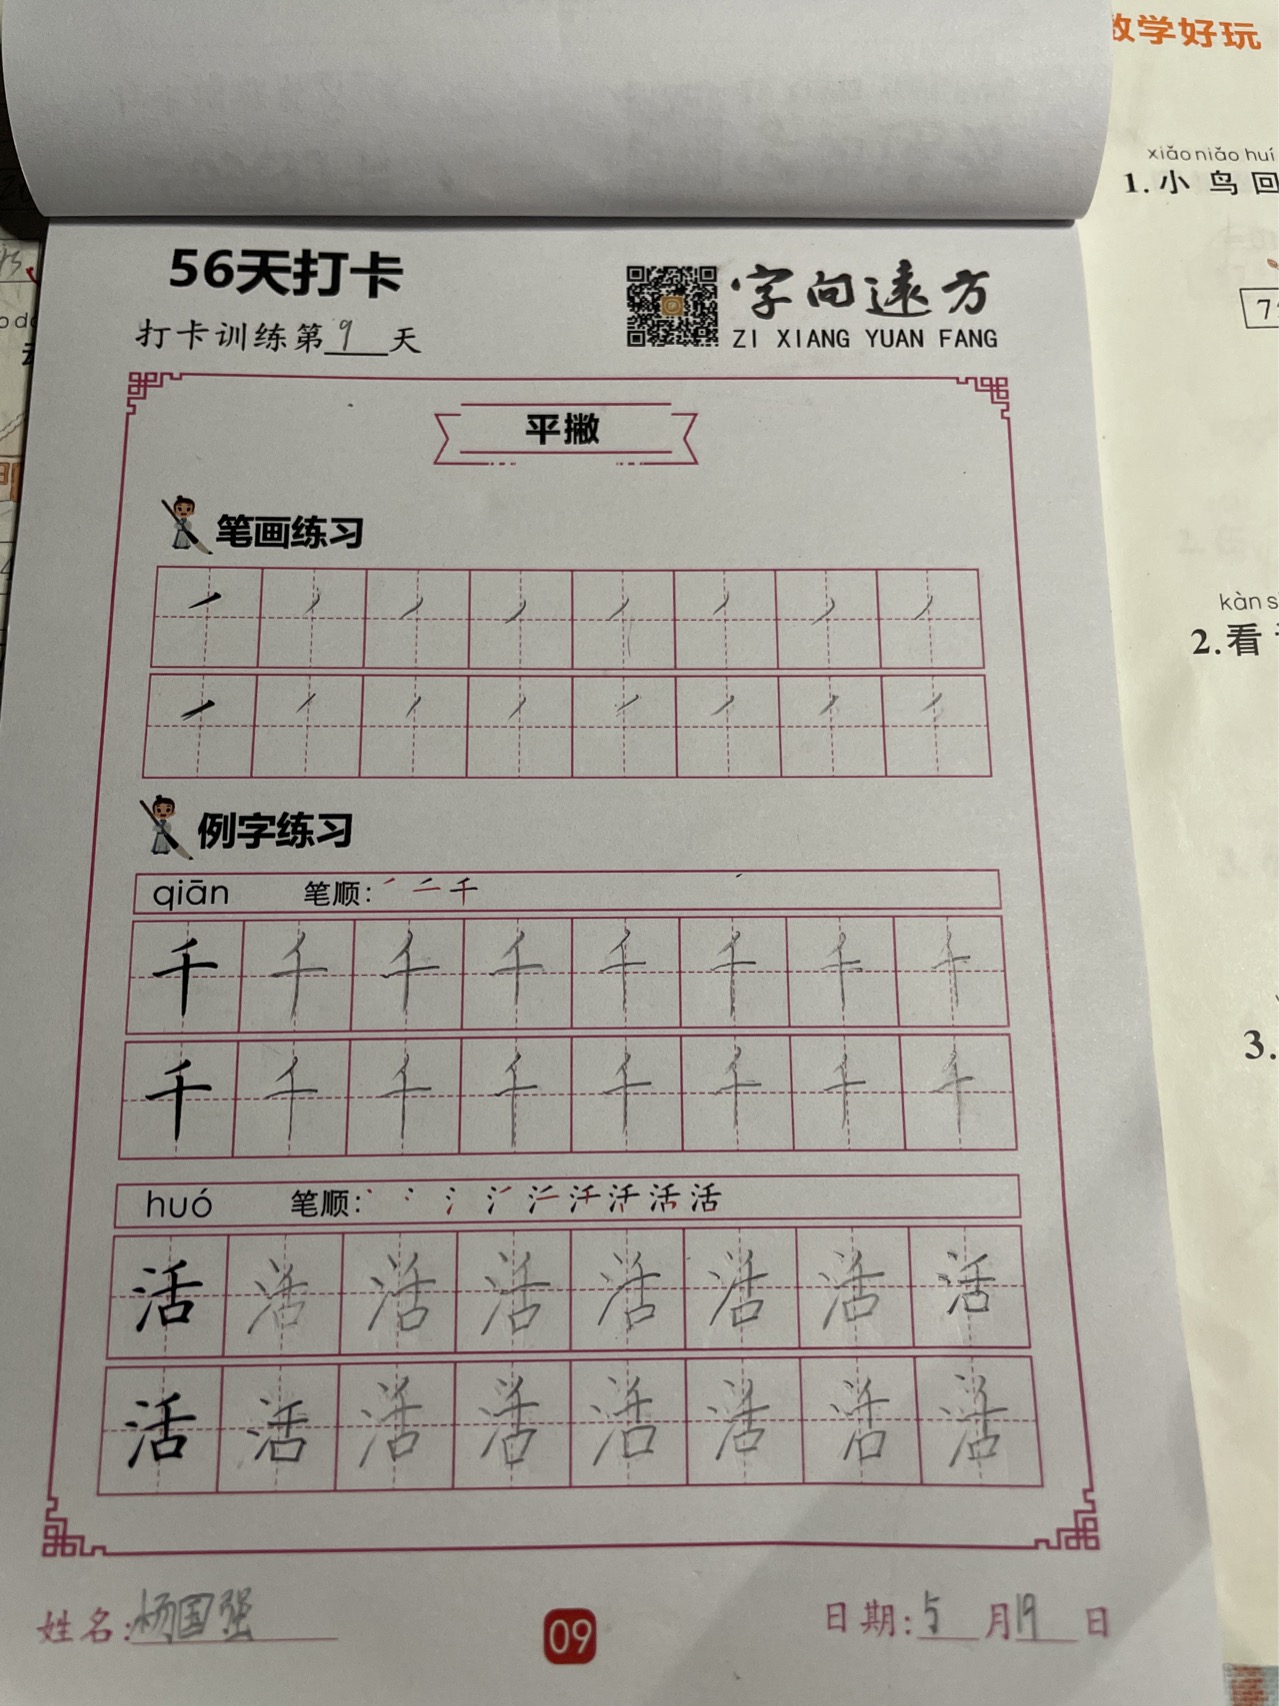 数学好玩
xiǎo niǎo huí
1. 小鸟回
56天打卡
字向远方
打卡训练第9天
ZI XIANG YUAN FANG
平撇
笔画练习
kàn s
2. 看
例字练习
qiān 笔顺: 千
千 千 千 千 千 千 千 千
千 千 千 千 千 千 千 千
3.
huó 笔顺: 活
活 活 活 活 活 活 活 活
活 活 活 活 活 活 活 活
姓名: 杨国强
09
日期: 5月19日